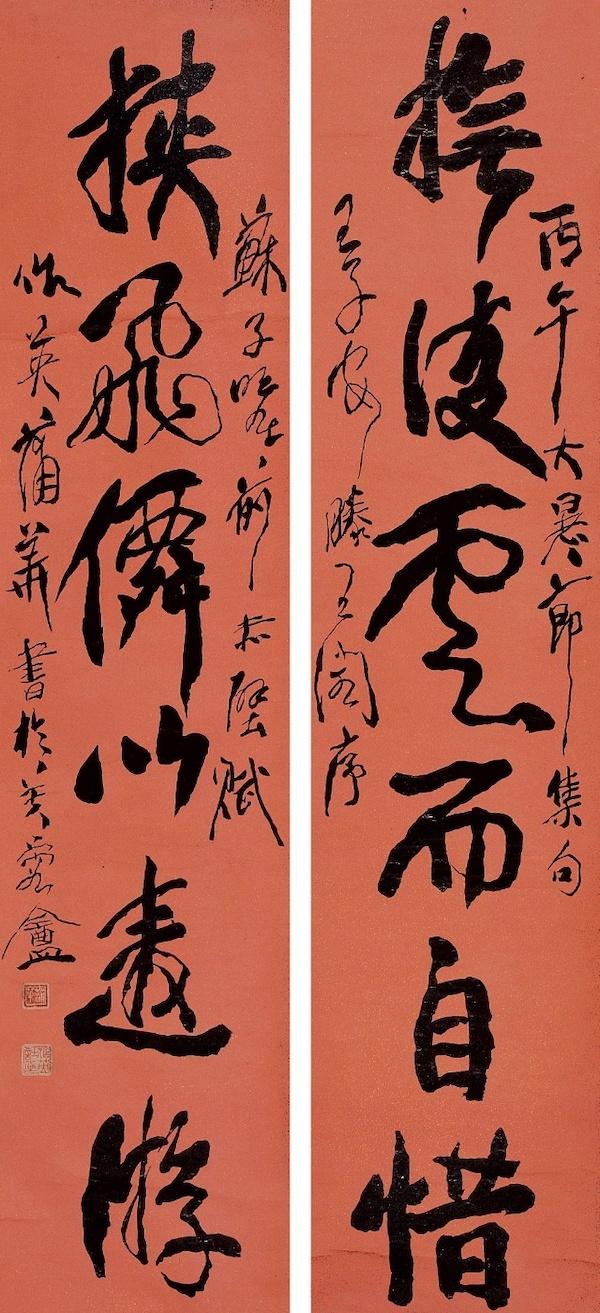 丙午大暑節集句
撫凌雲而自惜
王子安滕王閣序
蘇子瞻前赤壁賦
挾飛僊以遨游
作英蒲華書於芙蓉盦